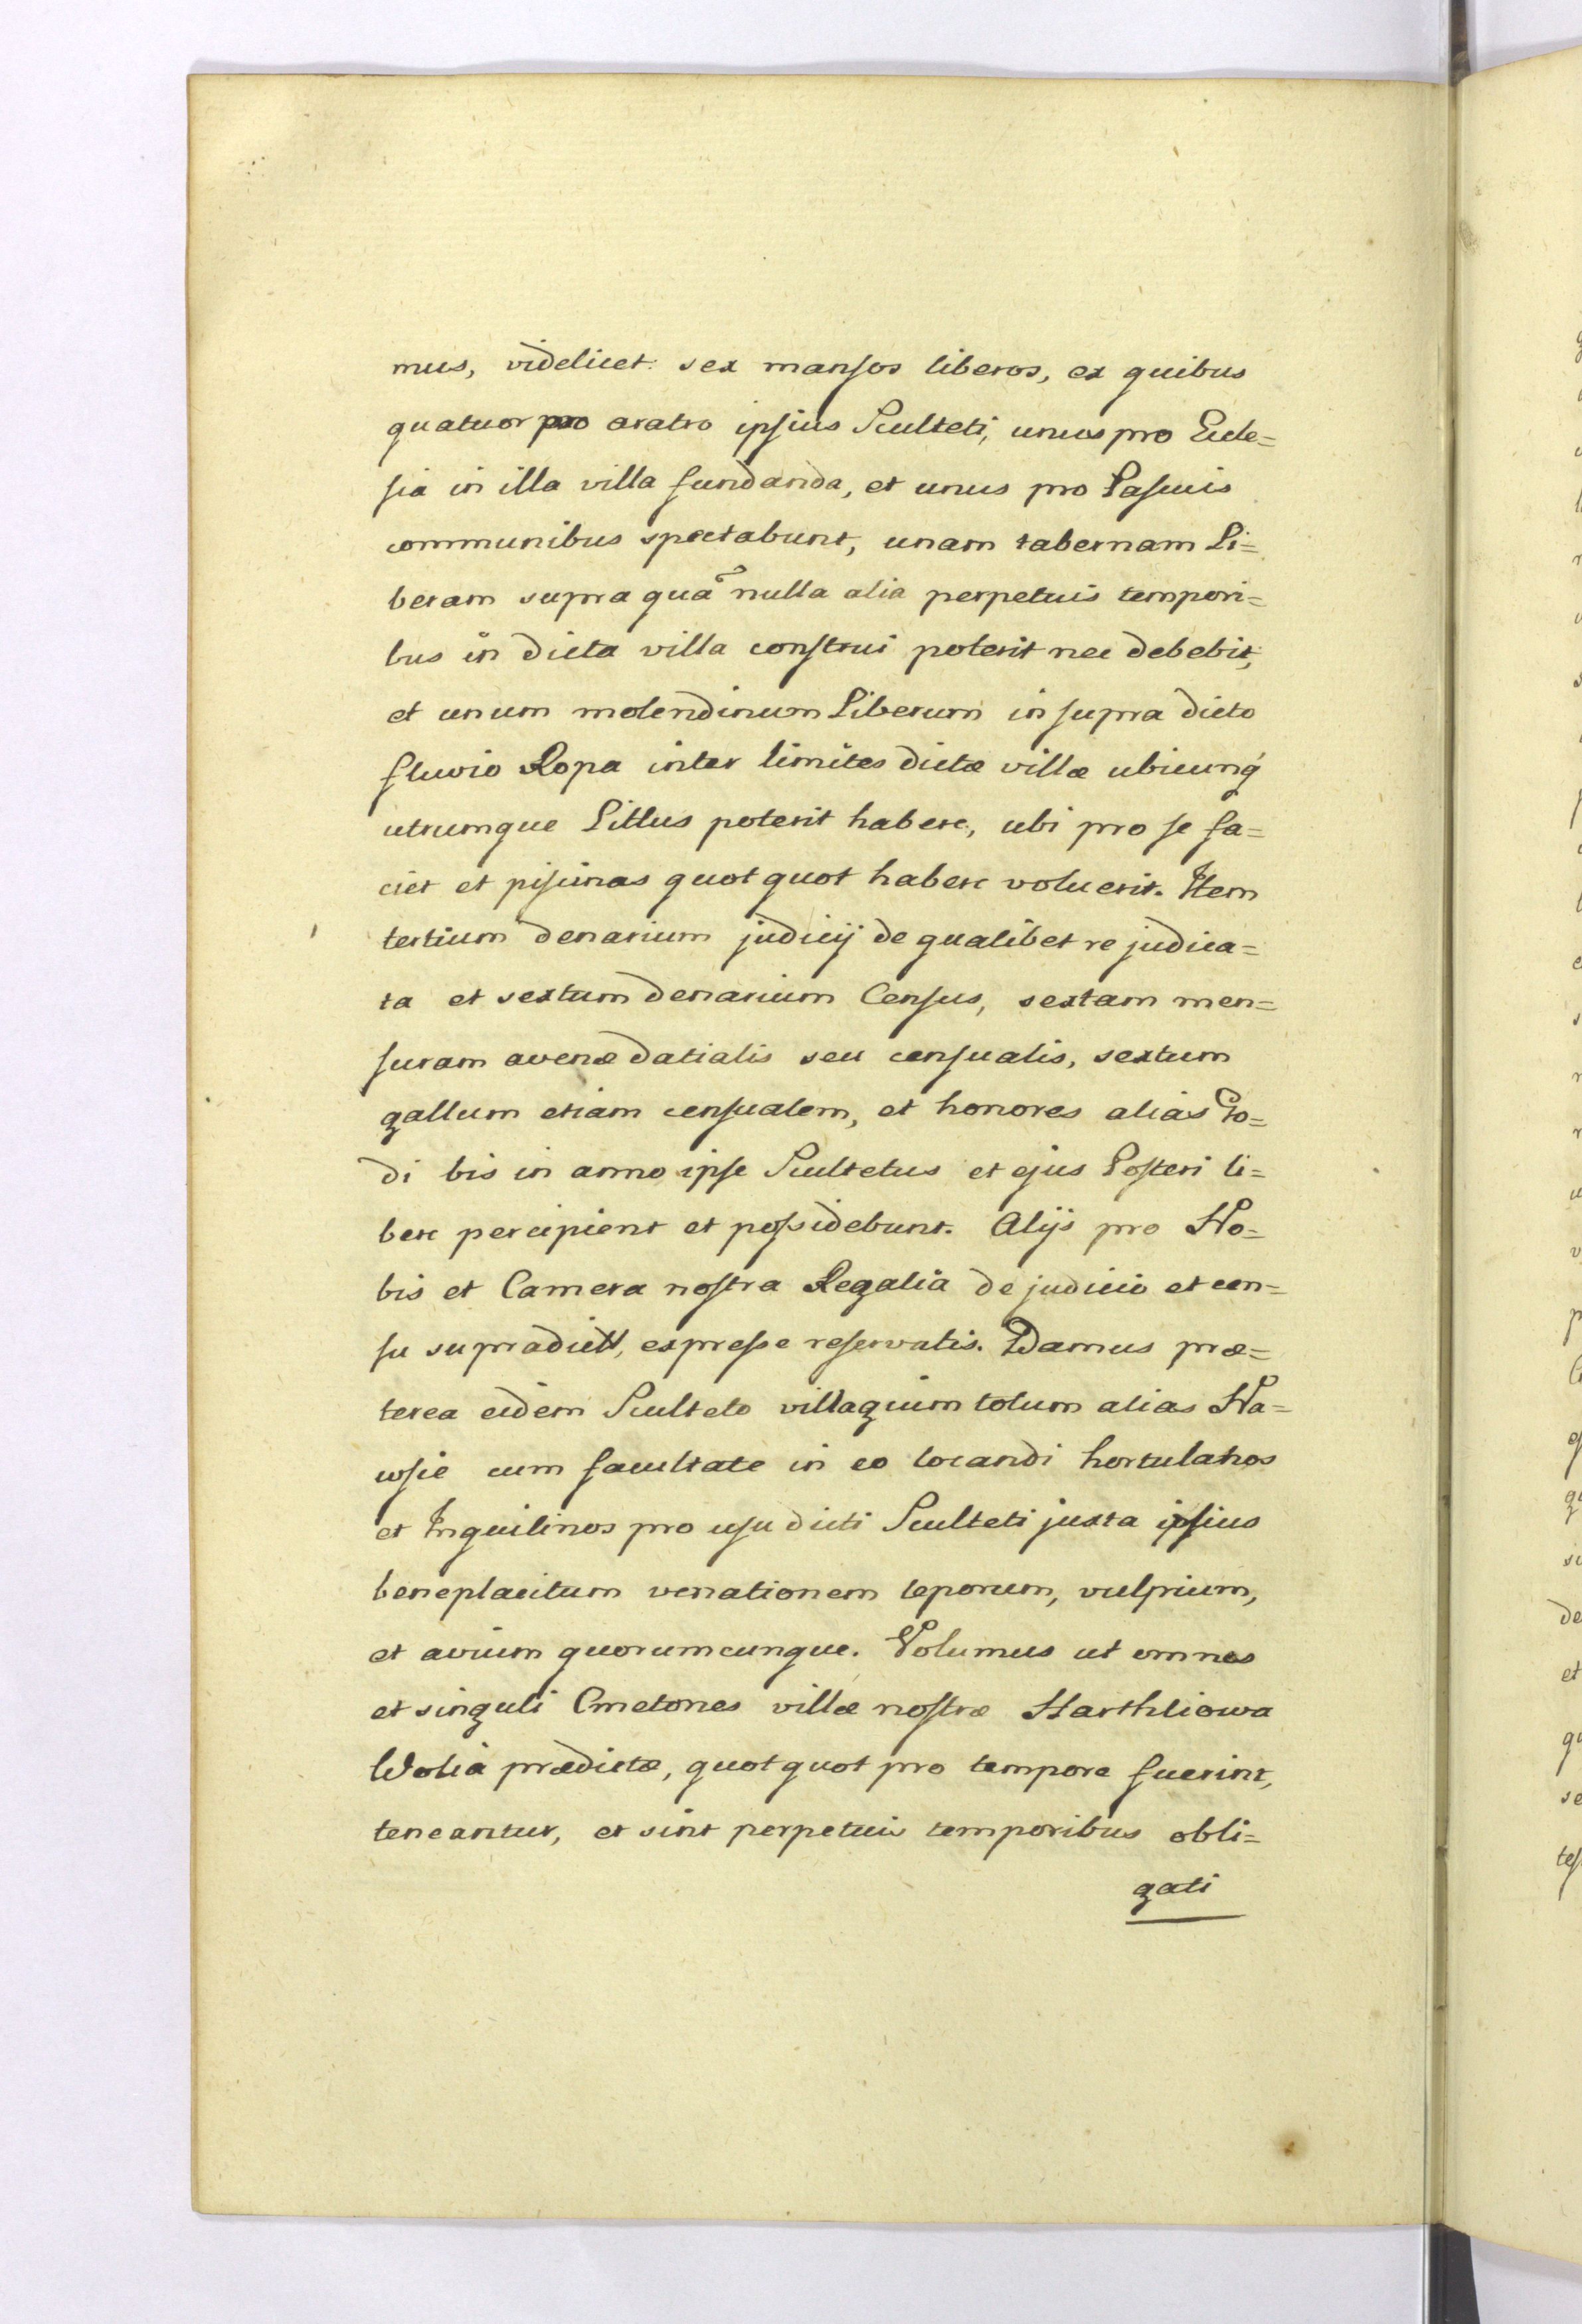 mus, videlicet: sex mansos liberos, ex quibus
quatuor pro aratro ipsius Sculteti, unus pro Eccle=
sia in illa villa fundanda, et unus pro Pascuis
communibus spectabunt, unam tabernam Li=
beram supra quã nulla alia perpetuis tempori=
bus in dicta villa construi poterit nec debebit,
et unum molendinum Liberum in supra dicto
fluvio Ropa inter limites dictæ villæ ubicunq
utrumque Littus poterit habere, ubi pro se fa=
ciet et piscinas quot quot habere voluerit. Item
tertium denarium judicij de qualibet re judica=
ta et sextum denarium Census, sextam men=
suram avenæ datialis seu censualis, sextum
gallum etiam censualem, et honores alias Po=
di bis in anno ipse Scultetus et ejus Posteri li=
bere percipient et possidebunt. Alijs pro No=
bis et Camera nostra Regalia de judicio et cen=
su supradictt, expresse reservatis. Damus præ=
terea eidem Sculteto villagium totum alias Na=
wsie cum facultate in eo locandi hortulanos
et Inquilinos pro usu dicti Sculteti juxta ipsius
beneplacitum venationem leporum, vulpium,
et avium quorumcunque. Volumus ut omnes
et singuli Cmetones villæ nostræ Harthliowa
Wolia prædictæ, quot quot pro tempore fuerint,
teneantur, et sint perpetuis temporibus obli=
gati